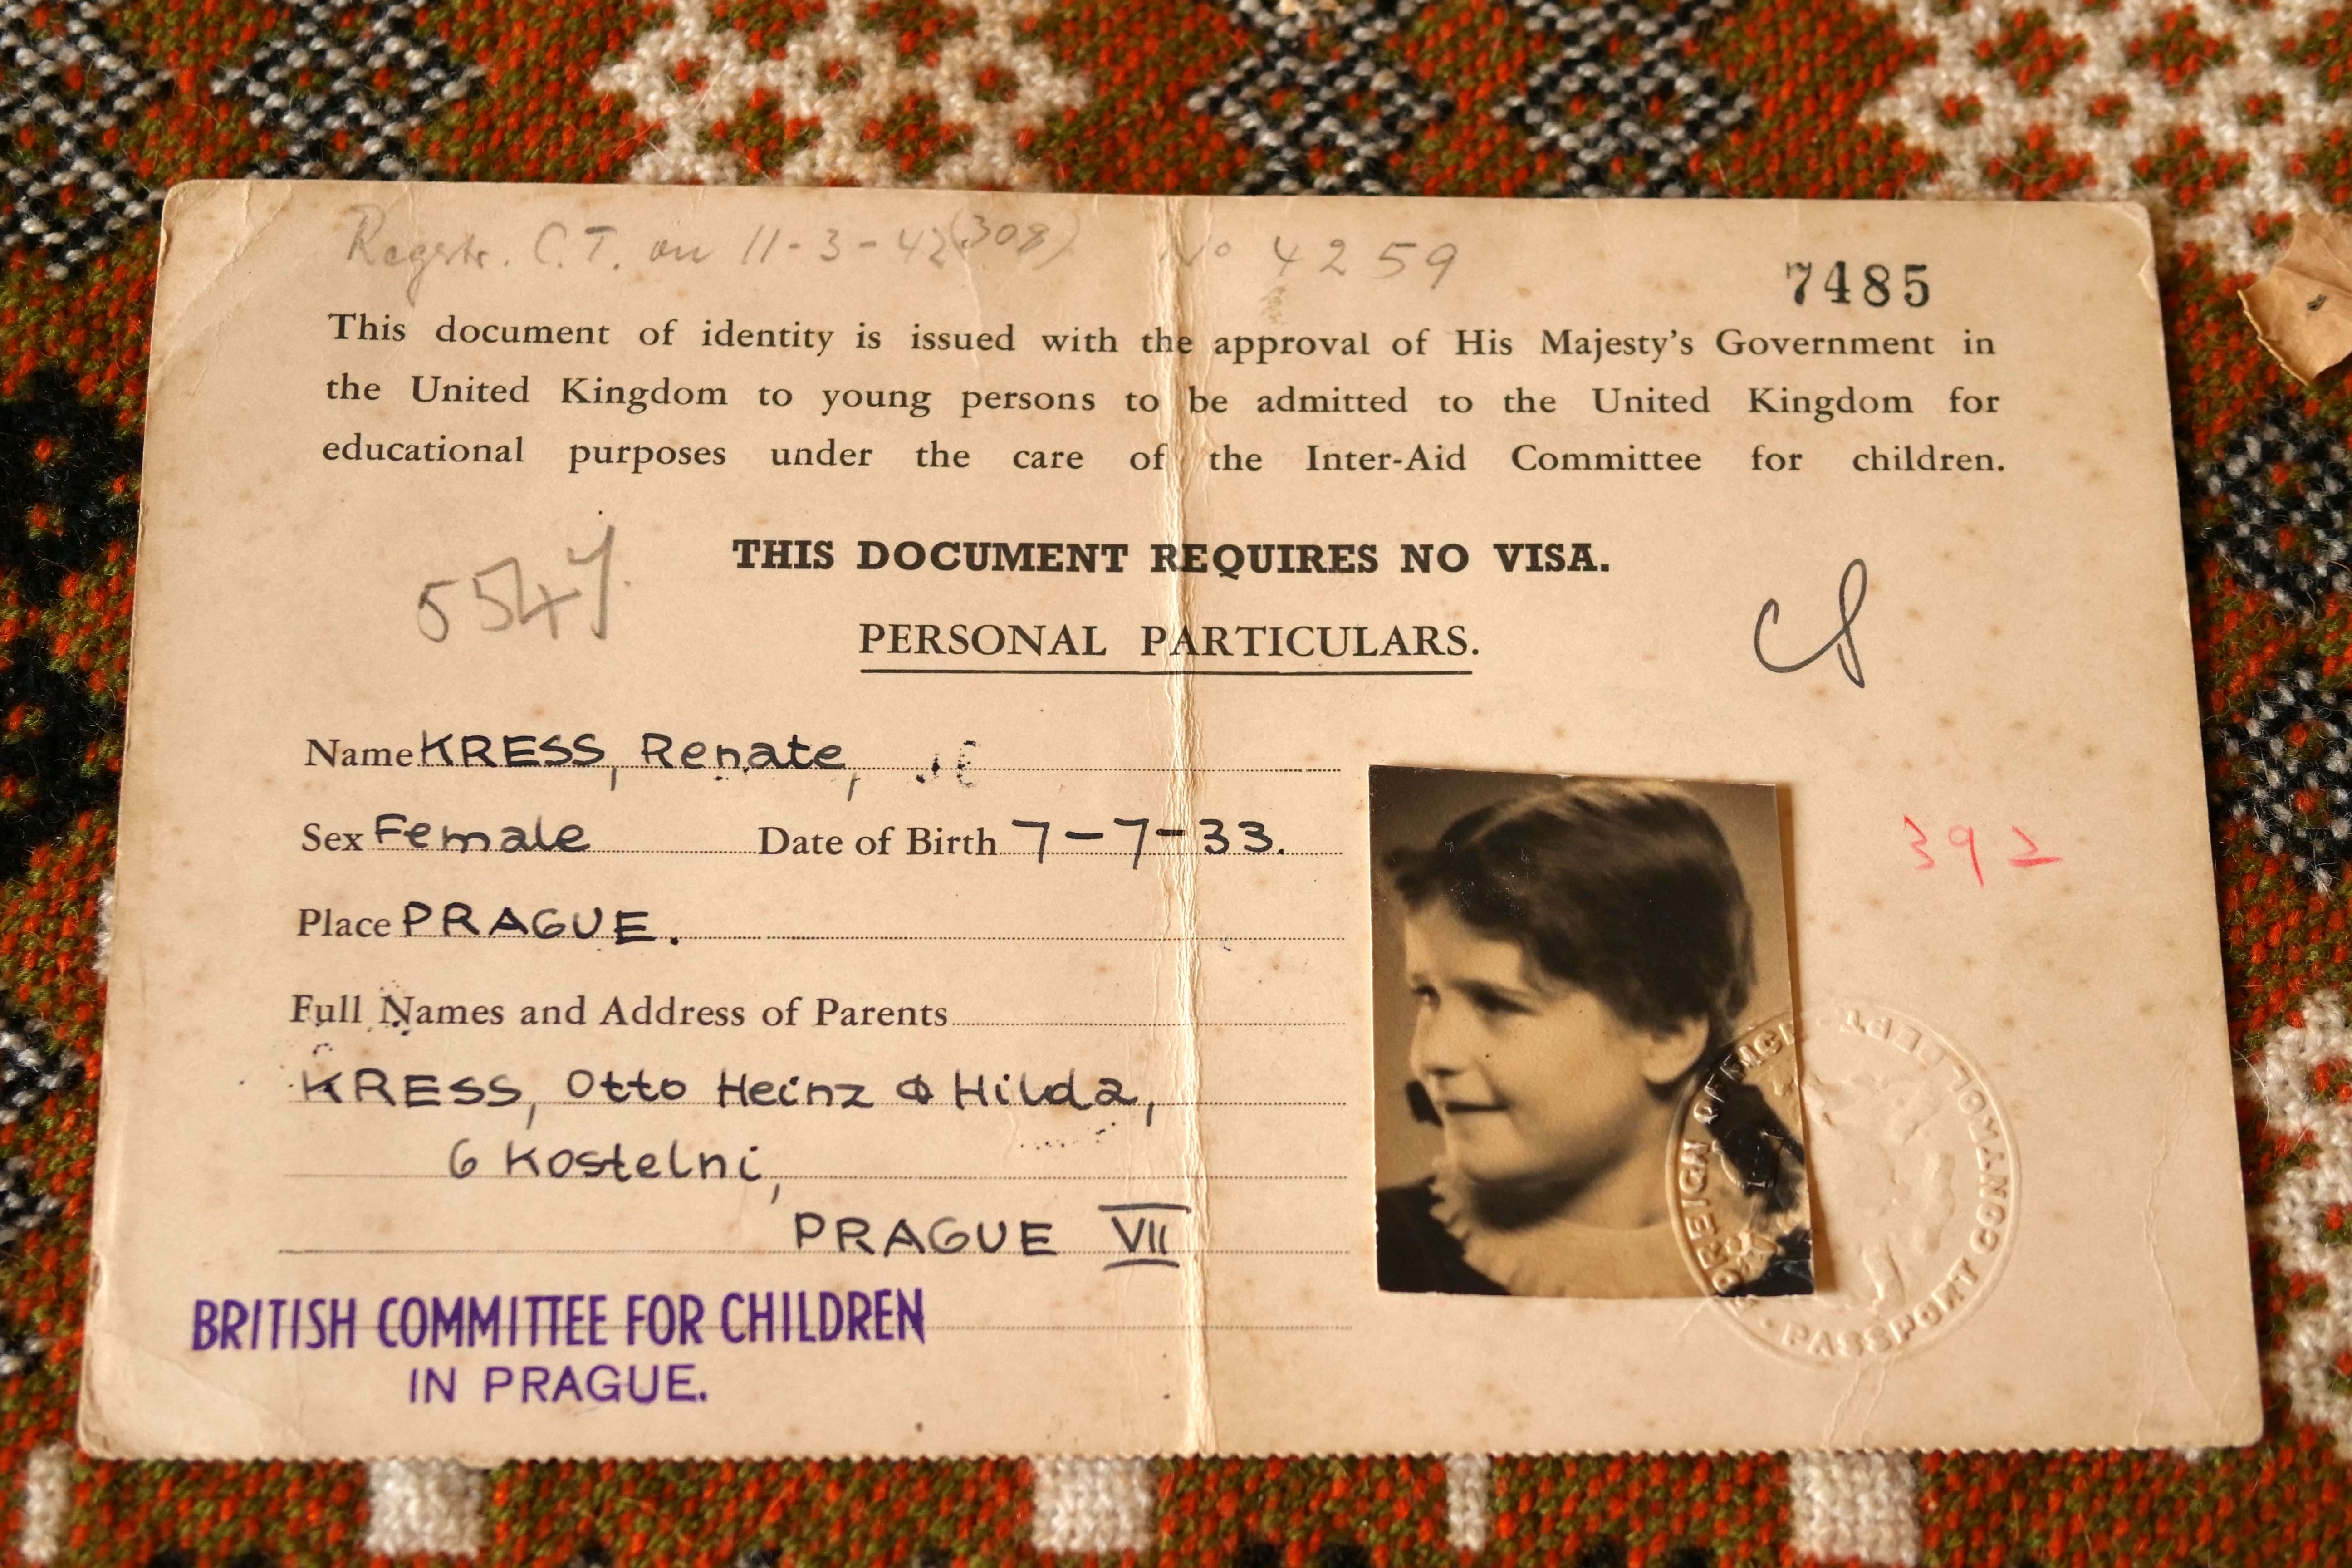 Regstr. C.T. on 11-3-42 (308) No 4259
7485
This document of identity is issued with the approval of His Majesty's Government in
the United Kingdom to young persons to be admitted to the United Kingdom for
educational purposes under the care of the Inter-Aid Committee for children.
THIS DOCUMENT REQUIRES NO VISA.
PERSONAL PARTICULARS.
Name KRESS, Renate,
Sex Female Date of Birth 7-7-33.
392
Place PRAGUE.
Full Names and Address of Parents
KRESS, Otto Heinz & Hilda,
6 Kostelni,
PRAGUE VII
FOREIGN OFFICE · PASSPORT CONTROL DEPT.
BRITISH COMMITTEE FOR CHILDREN
IN PRAGUE.